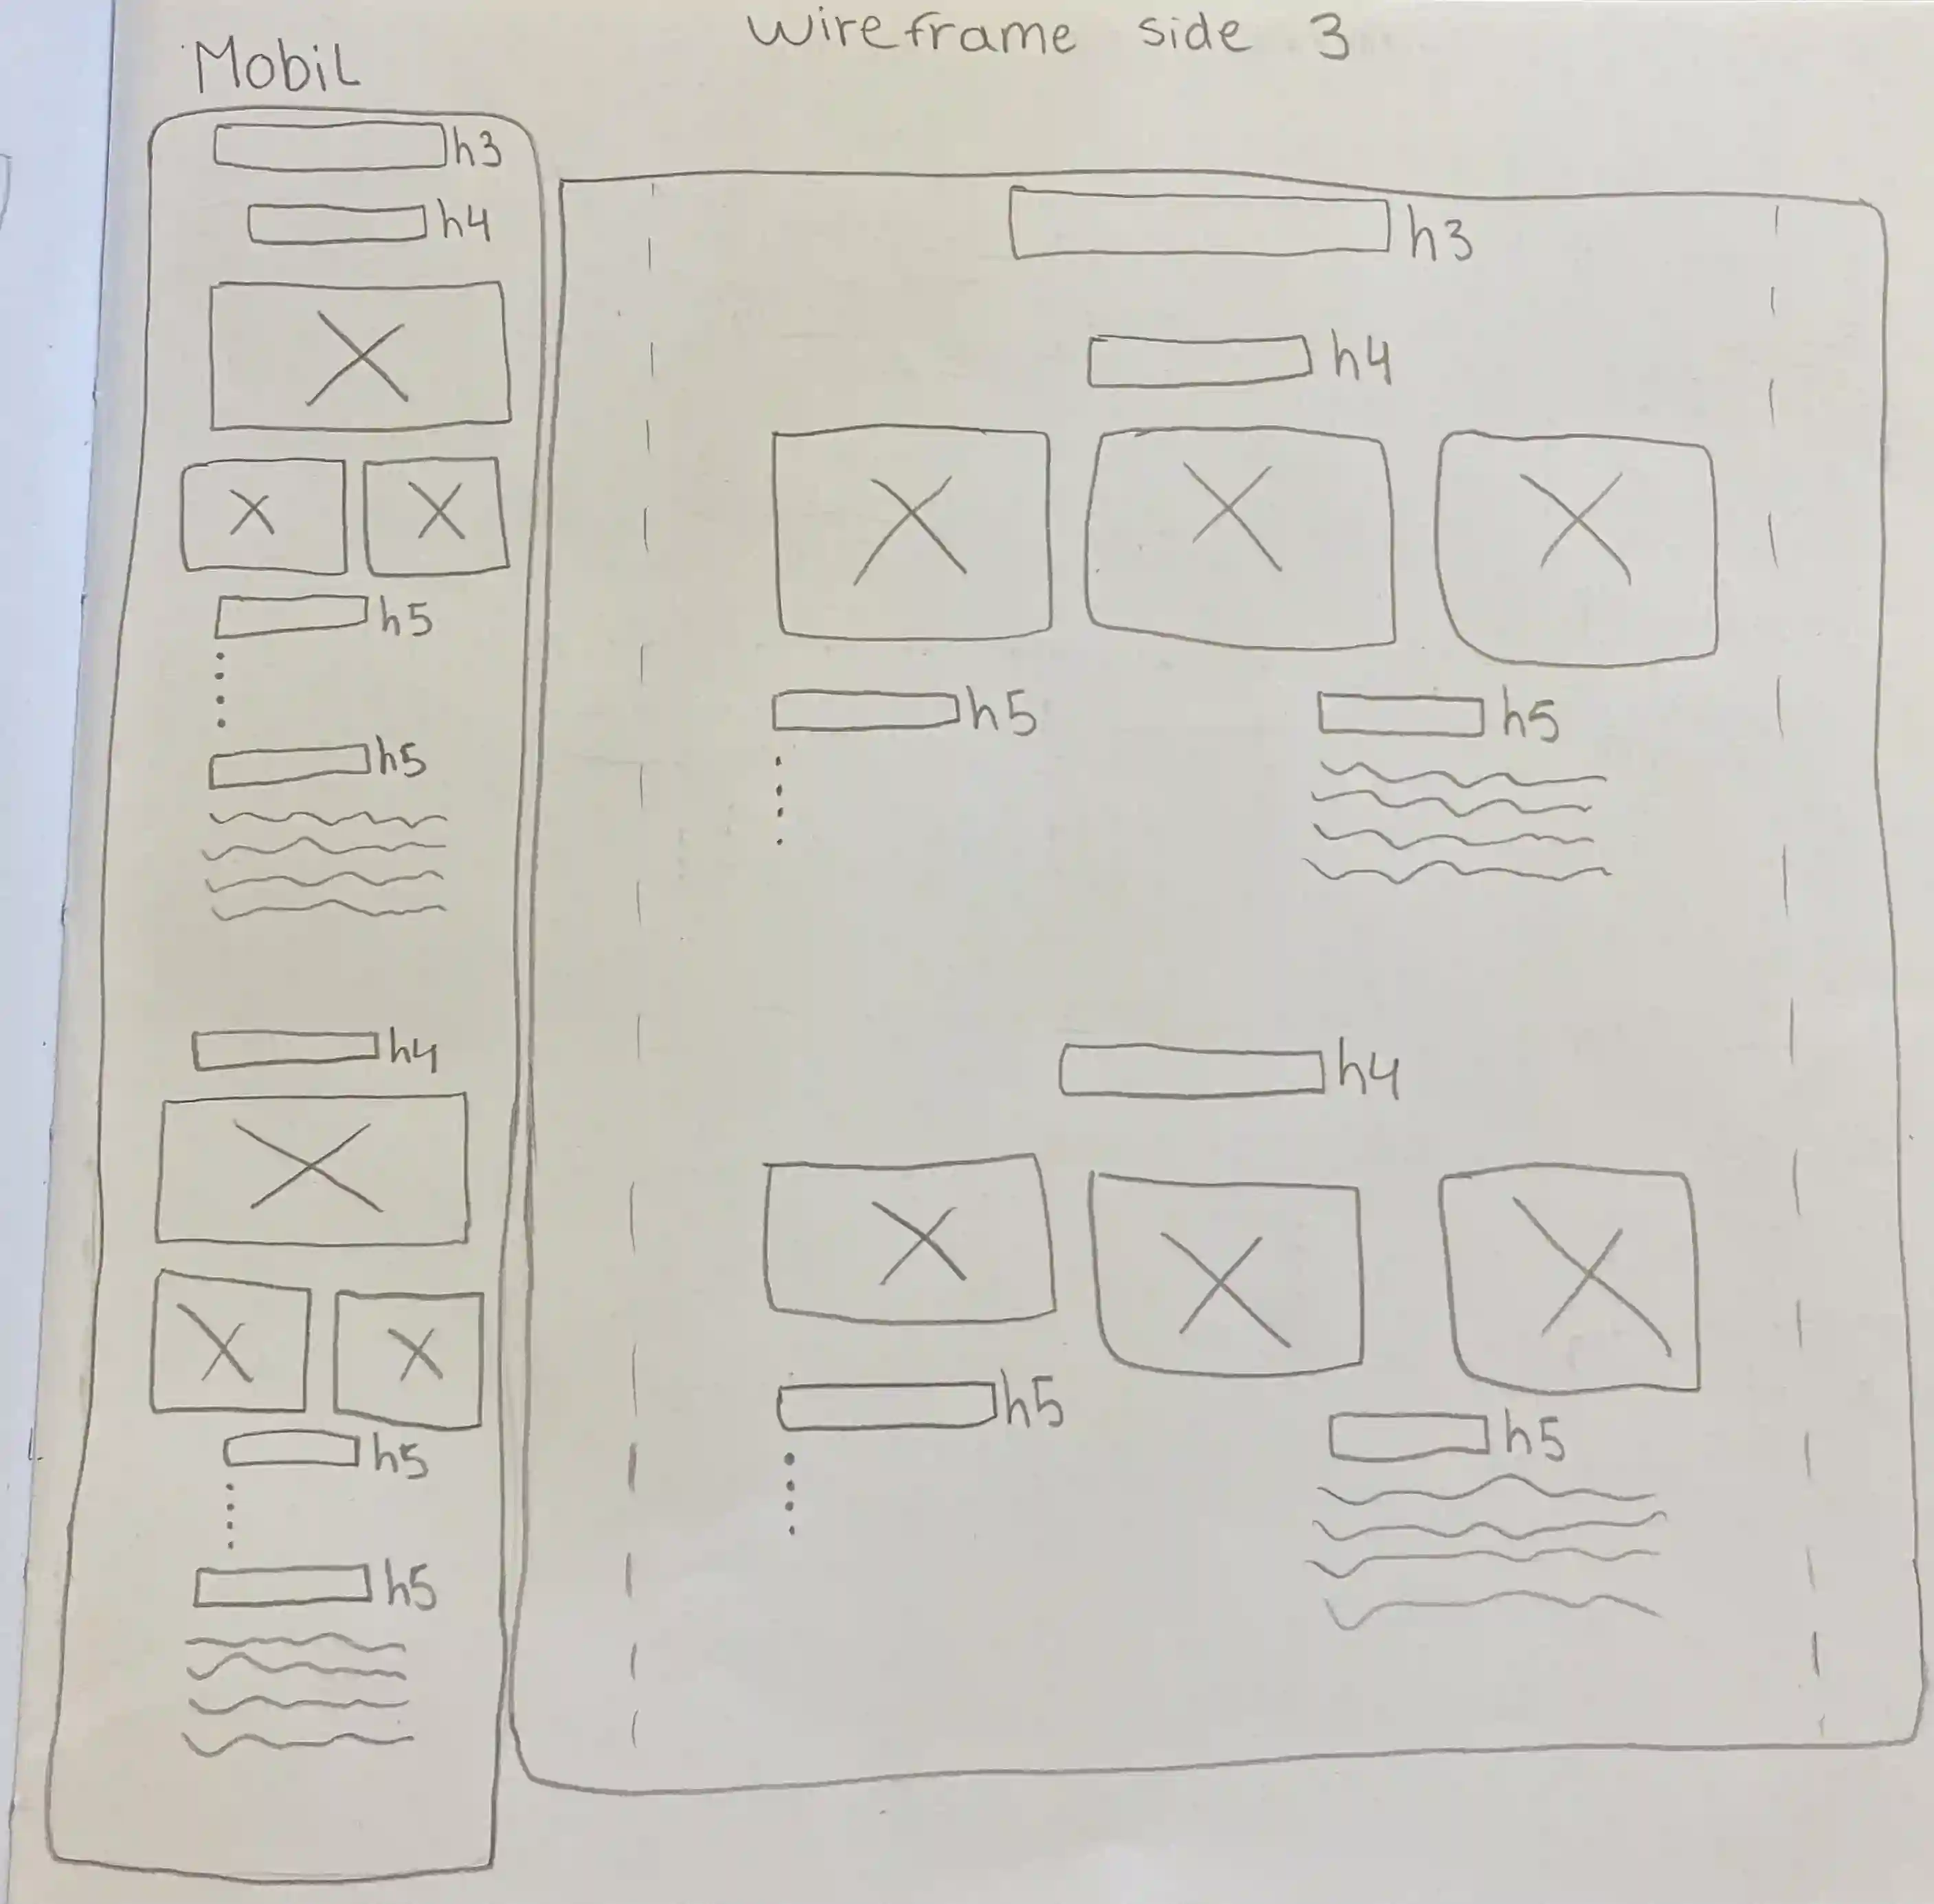 Wireframe side 3
Mobil
h3
h4
h5
h5
h4
h5
h5
h3
h4
h5 h5
h4
h5 h5